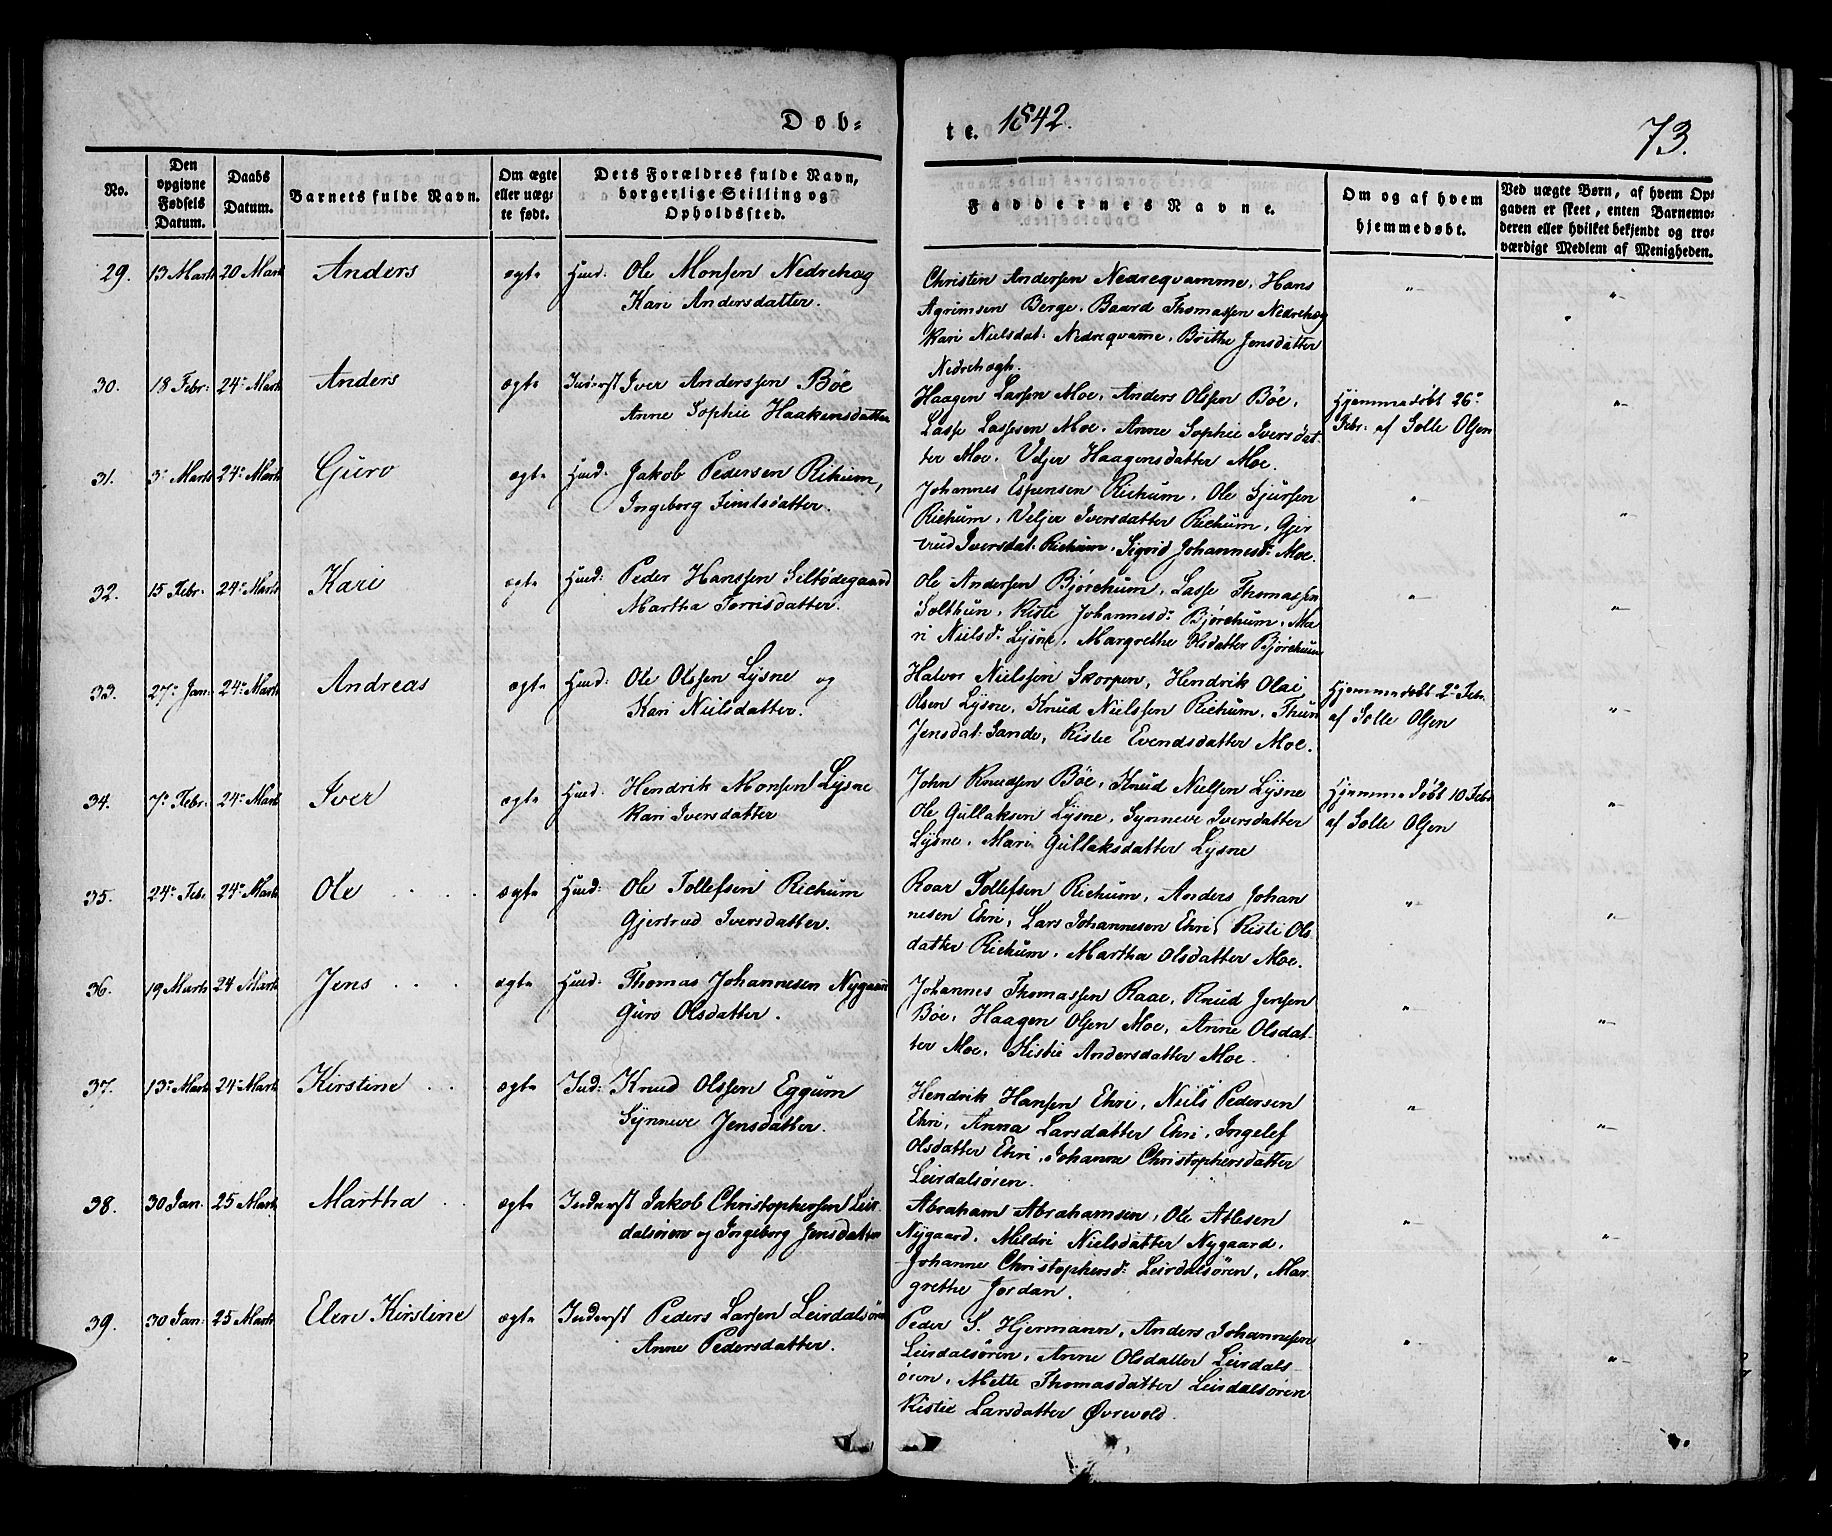 Døb-
te. 1842.
73.
No.
Den opgivne Fødsels Datum.
Daabs Datum.
Barnets fulde Navn.
Om ægte eller uægte født.
Dets Forældres fulde Navn, borgerlige Stilling og Opholdssted.
Faddernes Navne.
Om og af hvem hjemmedøbt.
Ved uægte Børn, af hvem Opgaven er skeet, enten Barnemoderen eller hvilket bekjendt og troværdigt Medlem af Menigheden.
29. 13 Marts 20 Mart Anders ægte Huusd. Ole Monsen Nedrehæg
Kari Andersdatter.
Christen Andersen Nedreqvamme, Hans
Agrimsen Berge, Baard Thomassen Nedrehæg
Kari Nielsdat. Nedreqvamme, Brithe Jensdatter
Nedrehægh.
30. 18 Febr: 24de Mart Anders ægte Inderst Iver Anderssen Böe
Anne Sophie Haakensdatter
Haagen Larsen Moe, Anders Olsen Böe,
Lasse Lassesen Moe, Anne Sophie Iversdat-
ter Moe, Veljer Haagensdatter Moe.
Hjemmedöbt 26de
Febr. af Solle Olsen
31. 3de Marts 24de Marts Guro ægte Huusd: Jakob Pedersen Rikum,
Ingeborg Sjmlsdatter.
Johannes Espensen Richum, Ole Sjursen
Richum, Veljer Iversdatter Richum, Gjer
trud Iversdat. Richum, Sigvid Johannesd: Moe.
32. 15 Febr: 24de Marts Kari ægte Huusd: Peder Hanssen Seltödegaard
Martha Torrisdatter.
Ole Andersen Bjørchum, Lasse Thomassen
Solthun, Kisti Johannesd: Bjørchum, Ma
ri Nielsd: Lysne, Margrethe Olsdatter Bjørchum
33. 27de Jan: 24de Marts Andreas ægte Huusd: Ole Olssen Lysne og
Kari Nielsdatter.
Halvor Nielssen Skorpen, Hendrik Olai
Olsen Lysne, Knud Nielssen Richum, Thuri
Jensdat: Sande, Kistie Evendsdatter Moe.
Hjemmedöbt 2de Febr.
af Solle Olsen
34. 7de Febr: 24de Mart Iver ægte Huusd: Hendrik Monsen Lysne
Kari Iversdatter
John Knudsen Böe, Knud Nielsen Lysne
Ole Gullaksen Lysne, Synneve Iversdatter
Lysne, Mari Gullaksdatter Lysne
Hjemmedöbt 10 Febr
af Solle Olsen
35. 24de Feb: 24de Marts Ole ægte Huusd: Ole Tollefsen Richum
Gjertrud Iversdatter.
Roar Tollefsen Richum, Anders Johan
nesen Ehri, Lars Johannesen Ehri, Kisti Ols-
datter Richum, Martha Olsdatter Moe.
36. 19 Marts 24 Marts Jens ægte Huusd: Thomas Johannesen Nygaard
Guro Olsdatter.
Johannes Thomassen Raae, Knud Jensen
Böe, Haagen Olsen Moe, Anne Olsdat-
ter Moe, Kistie Andersdatter Moe
37. 13de Marts 24de Marts Kirstine ægte Ind: Knud Olssen Eggum
Synneve Jensdatter.
Hendrik Hansen Ehri, Niels Pedersen
Ehri, Anna Larsdatter Ehri, Ingelef
Olsdatter Ehri, Johanne Christophersdatter
Leirdalsören.
38. 30 Jan. 25 Marts Martha ægte Inderst Jakob Christophersen Leir-
dalsören og Ingeborg Jensdatter
Abraham Abrahamsen, Ole Atlesen
Nygaard, Mildri Nielsdatter Nygaard,
Johanne Christophersd: Leirdalsören, Mar-
grethe Jordan.
39. 30 Jan: 25 Marts Elen Kirstine ægte Inderst Peders Larsen Leirdalsören
Anne Pedersdatter.
Peder S. Hjermann, Anders Johannesen
Leirdalsören, Anne Olsdatter Leirdals-
ören, Mette Thomasdatter Leirdalsören
Kistie Larsdatter Øvrevold.